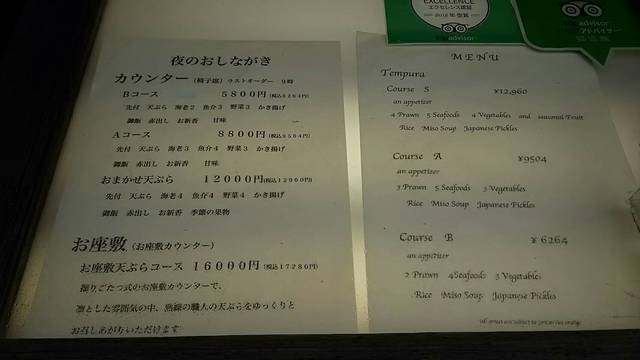 EXCELLENCE
エクセレンス認証
2015年受賞
advisor
アドバイザー
夜のおしながき
カウンター（椅子席）ラストオーダー 9時
Bコース 5800円(税込6264円)
先付 天ぷら 海老2 魚介3 野菜3 かき揚げ
御飯 赤出し お新香 甘味
Aコース 8800円(税込9504円)
先付 天ぷら 海老3 魚介4 野菜3 かき揚げ
御飯 赤出し お新香 甘味
おまかせ天ぷら 12000円(税込12960円)
先付 天ぷら 海老4 魚介4 野菜4 かき揚げ
御飯 赤出し お新香 季節の果物
お座敷（お座敷カウンター）
お座敷天ぷらコース 16000円(税込17280円)
掘りごたつ式のお座敷カウンターで、
凛とした雰囲気の中、熟練の職人の天ぷらをゆっくりと
お召しあがりいただけます
MENU
Tempura
Course S ¥12,960
an appetizer
4 Prawn 5 Seafoods 4 Vegetables and seasonal Fruit
Rice Miso Soup Japanese Pickles
Course A ¥9504
an appetizer
3 Prawn 5 Seafoods 3 Vegetables
Rice Miso Soup Japanese Pickles
Course B ¥6264
an appetizer
2 Prawn 4Seafoods 3 Vegetables
Rice Miso Soup Japanese Pickles